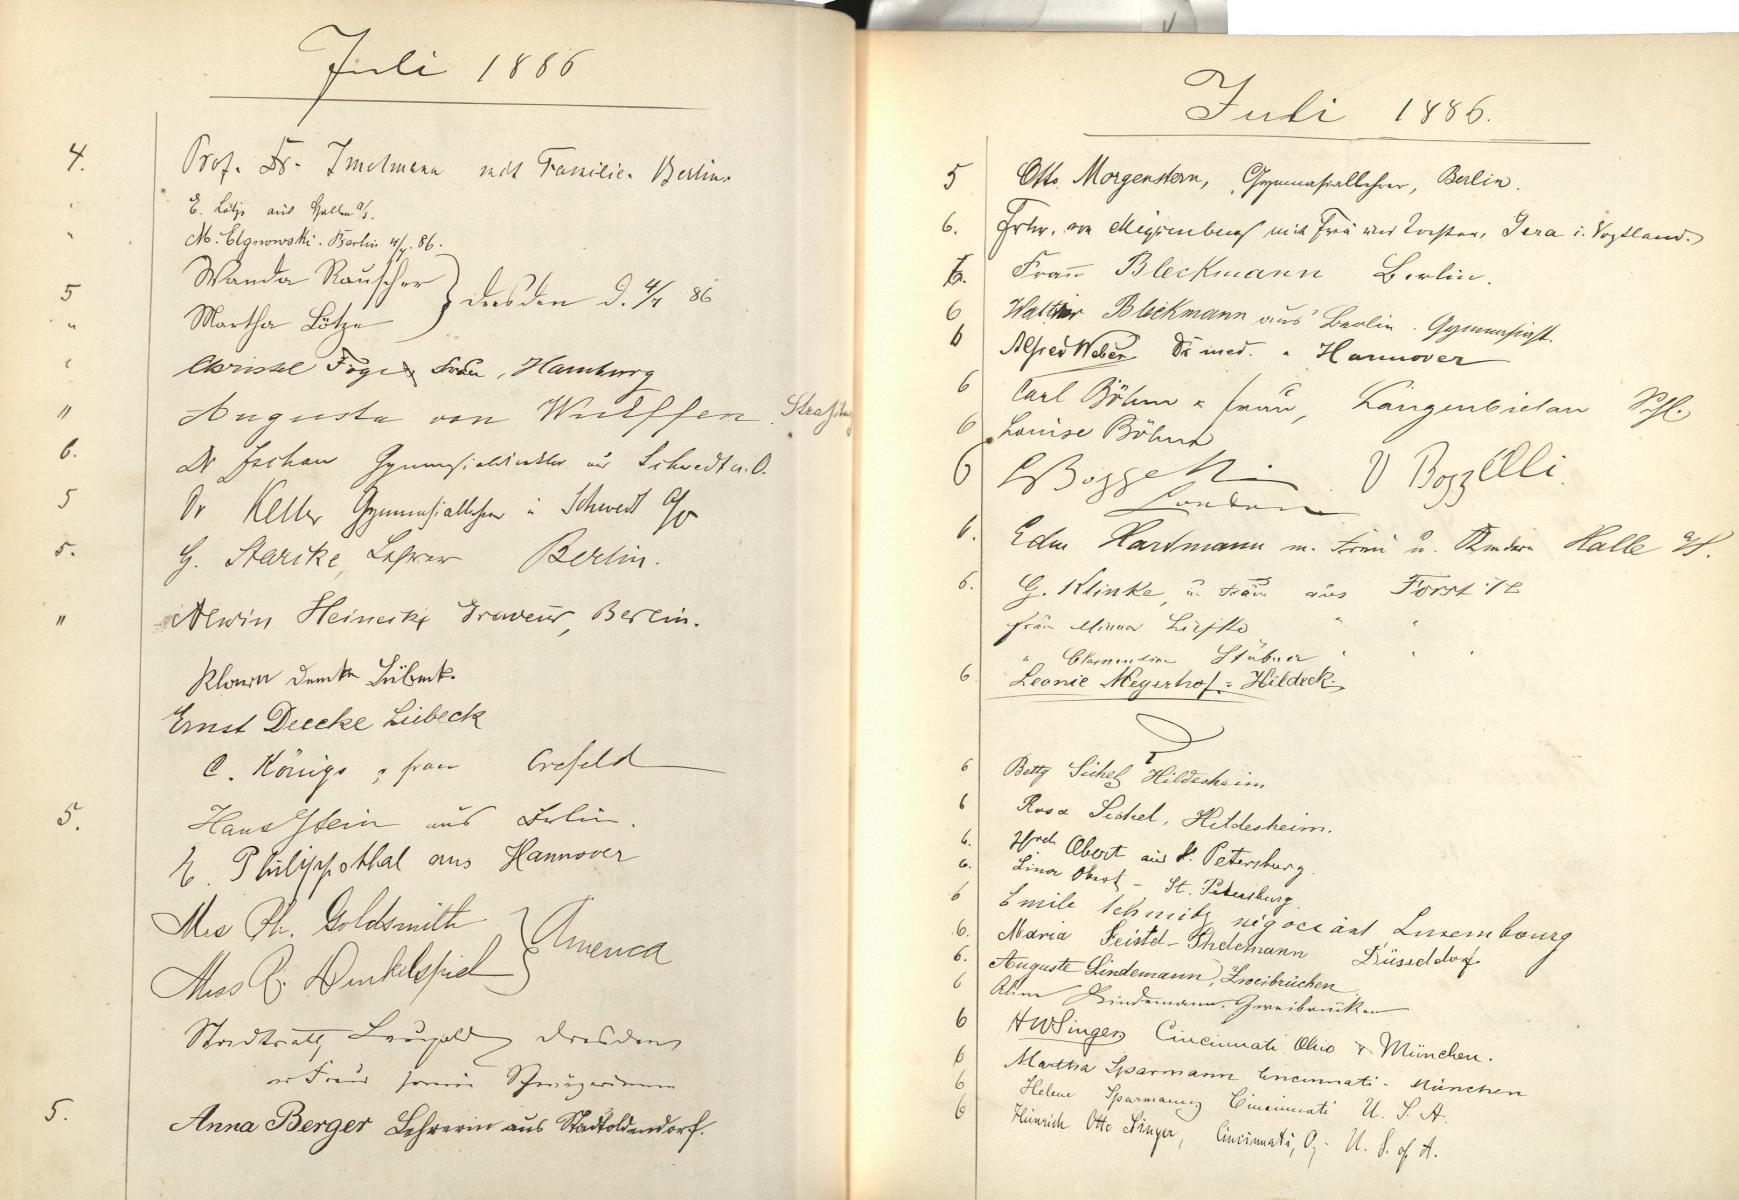 Juli 1886
4. Prof. Dr. Imelmann mit Familie. Berlin.
" E. Lötze aus Halle a/S.
" M. Elgnowski. Berlin 4/7. 86.
Wanda Rauscher
5 Dresden d. 4/7 86
" Martha Lötze
" Frau, Hamburg
" Augusta von Wulffen. Straßburg
6. Dr Gymnasialdirektor aus Schwedt a. O.
5 Dr Keller Gymnasiallehrer in Schwedt a/O
5. G. Starike, Lehrer Berlin.
" Alwin Heinecke Graveur, Berlin.
Lübeck.
Ernst Deecke Lübeck
C. Königs u frau Crefeld
5. Hans Stein aus Berlin.
E. Philippsthal aus Hannover
Mrs Ph. Goldsmith
America
Miss Dinkelspiel
Stadtrath Leupold Dresden
Frau Schwägerinnen
5. Anna Berger Lehrerin aus Stadtoldendorf.
Juli 1886.
5 Otto Morgenstern, Gymnasiallehrer, Berlin.
6. Frhr. von mit Frau und Tochter, Gera i. Vogtland.
6. Frau Bleckmann Berlin.
6 Walther Bleckmann aus Berlin. Gymnasiast.
6 Alfred Weber Dr med. Hannover
6 Carl Böhm u frau, Langenbielau Schl.
6 Louise Böhm
6 V Bozzelli.
London
6. Edm Hartmann m. Frau u. Kindern Halle a/S.
6. G. Klinke, u. Frau aus Forst i/L
frau Minna " "
" Clementine Stübner " " "
6 Leonie Meyerhof-Hildeck.
6 Betty Sichel Hildesheim
6 Rosa Sichel, Hildesheim.
6. Obert aus St. Petersburg.
6. Lina Obert - St. Petersburg.
6 Emile Schmitz négociant Luxembourg
6. Maria Düsseldorf.
6. Auguste Lindemann, Zweibrücken.
6 Aline Lindemann. Zweibrücken
6 HWSinger Cincinnati Ohio & München.
6 Martha Sparmann Cincinnati - München
6 Helene Sparmann Cincinnati U. S. A.
6 Heinrich Otto Singer, Cincinnati, O, - U. S. of A.